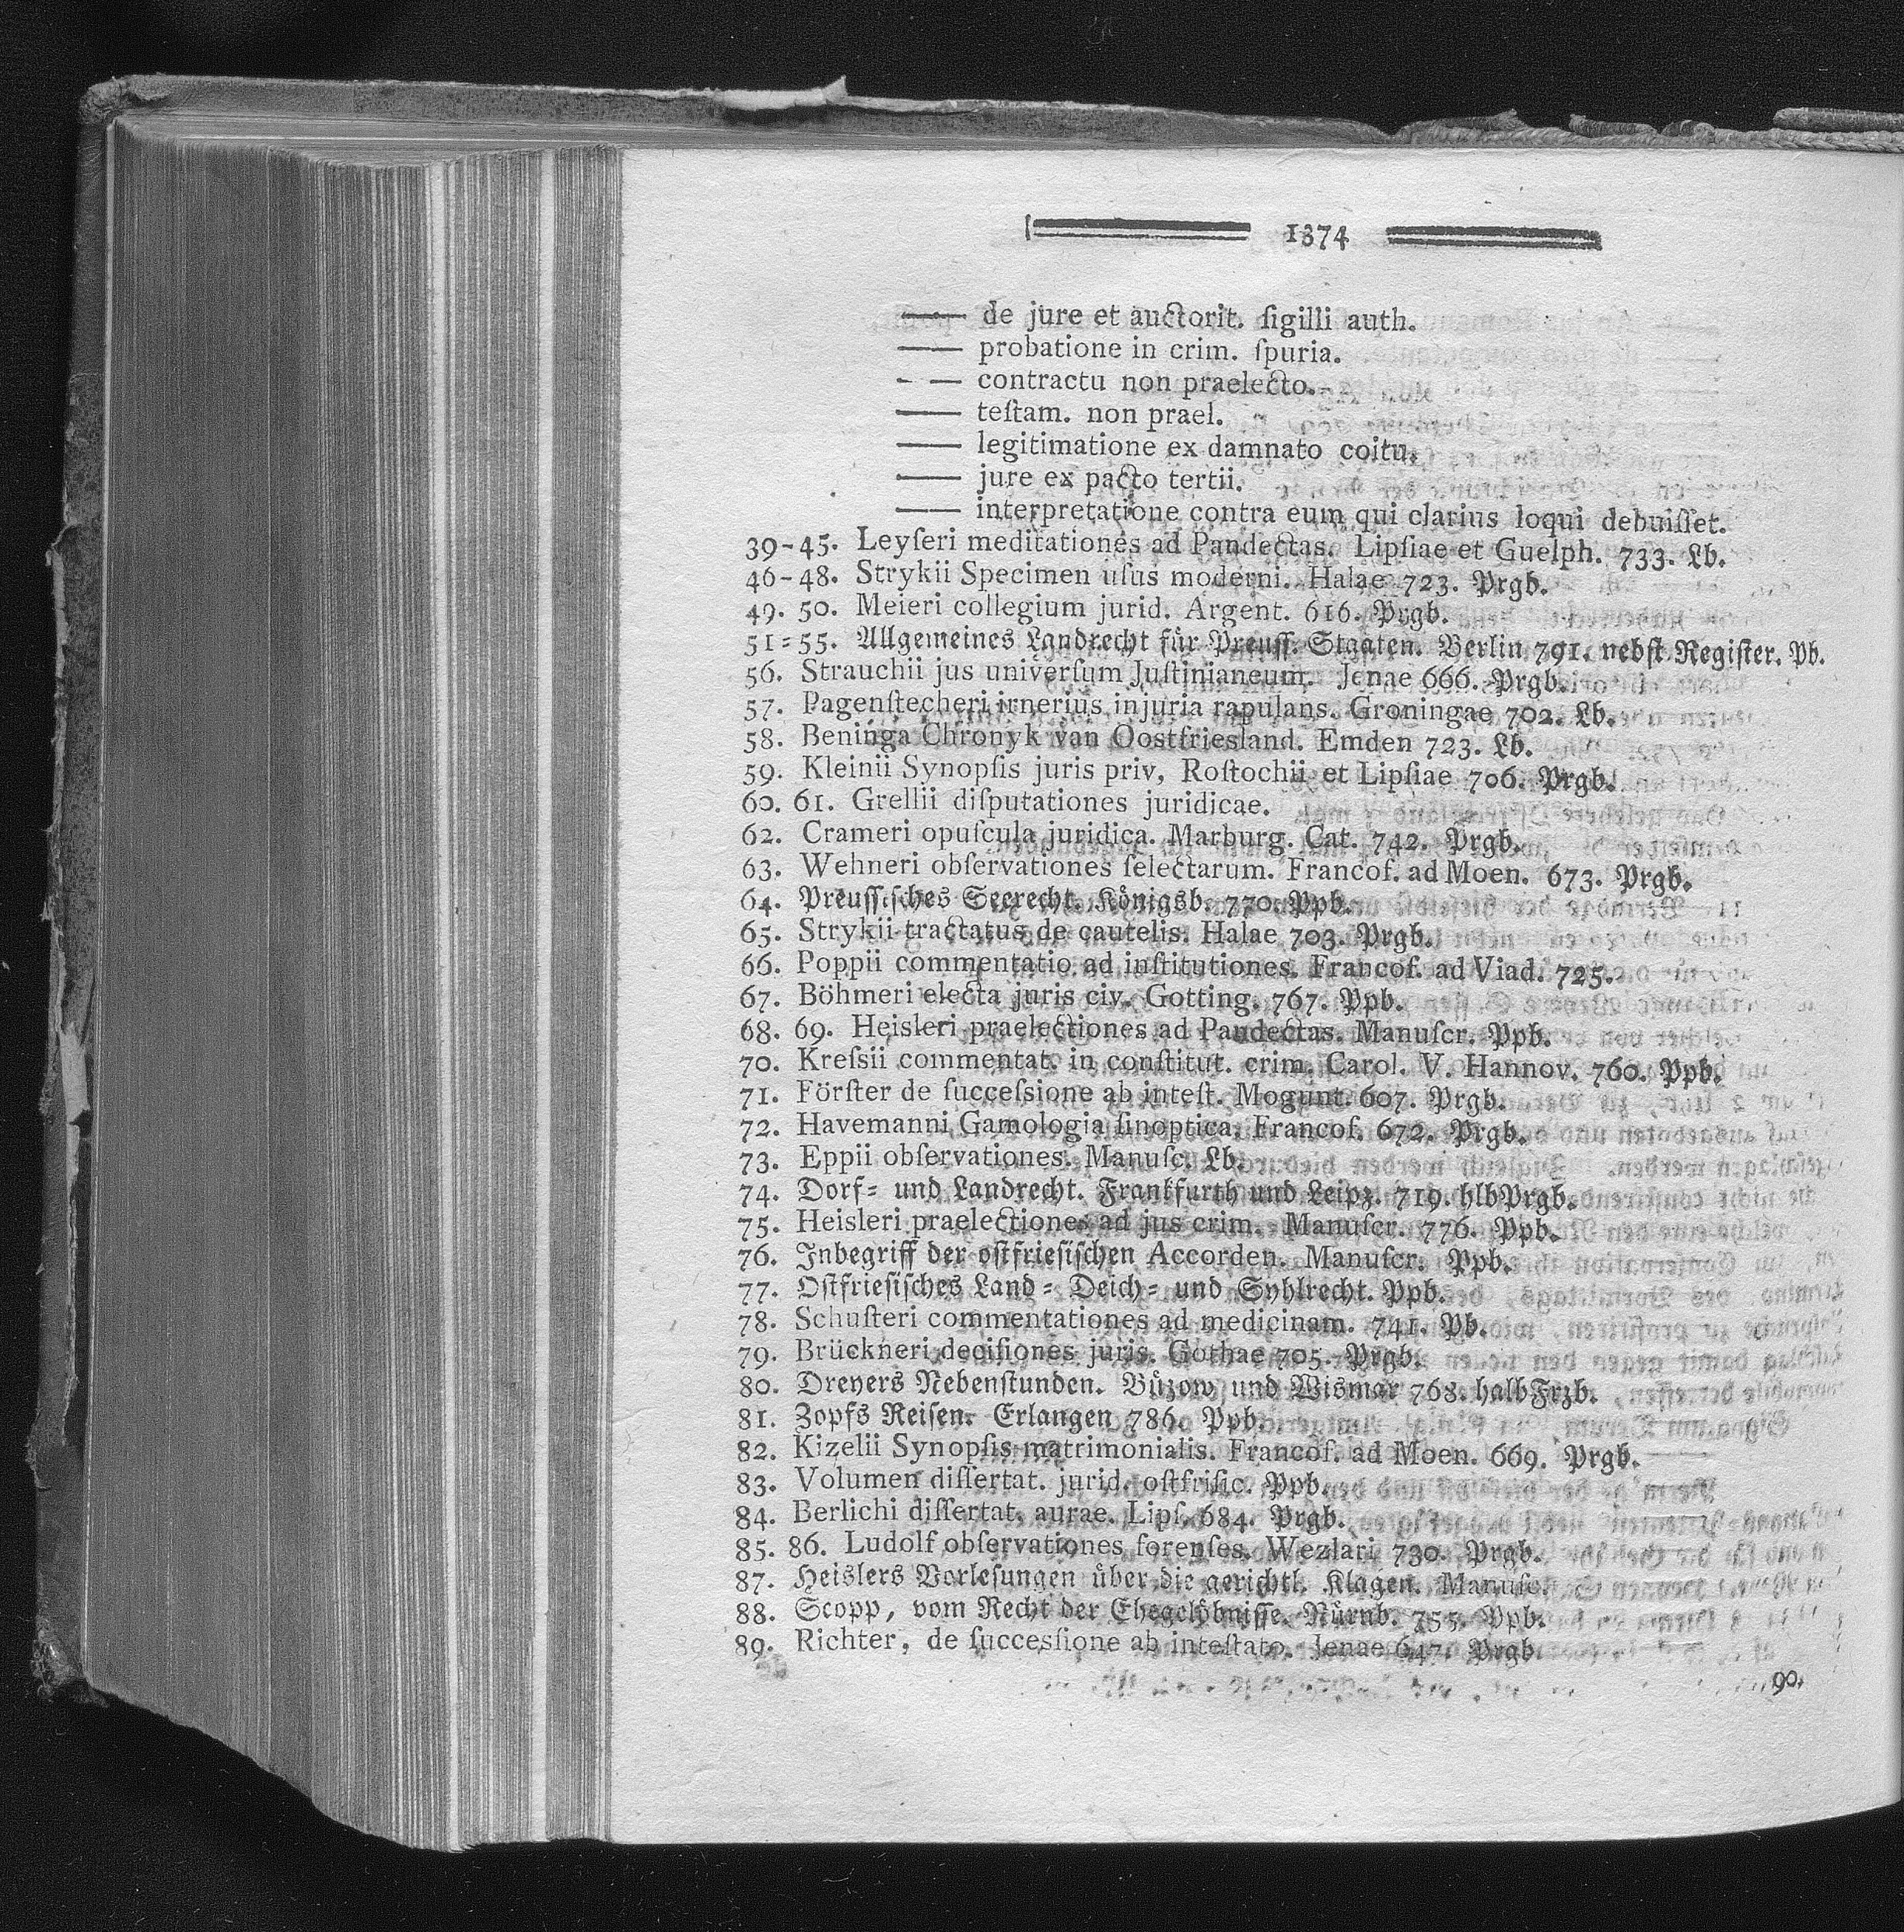 1374
—— de jure et auctorit. ſigilli auth.
—— probatione in crim. ſpuria.
- — contractu non praelecto.
—— teſtam. non prael.
—— legitimatione ex damnato coitu.
—— jure ex pacto tertii.
—— interpretatione contra eum qui clarius loqui debuiſſet.
39-45. Leyſeri meditationes ad Pandectas. Lipſiae et Guelph. 733. Lb.
46-48. Strykii Specimen uſus moderni. Halae 723. Prgb.
49. 50. Meieri collegium jurid. Argent. 616. Prgb.
51=55. Allgemeines Landrecht für Preuſſ. Staaten. Berlin 791. nebſt Regiſter. Pb.
56. Strauchii jus univerſum Juſtinianeum. Jenae 666. Prgb.
57. Pagenſtecheri irnerius injuria rapulans. Groningae 702. Lb.
58. Beninga Chronyk van Oostfriesland. Emden 723. Lb.
59. Kleinii Synopſis juris priv, Roſtochii et Lipſiae 706. Prgb.
60. 61. Grellii diſputationes juridicae.
62. Crameri opuſcula juridica. Marburg. Cat. 742. Prgb.
63. Wehneri obſervationes ſelectarum. Francof. ad Moen. 673. Prgb.
64. Preuſſiſches Seerecht. Königsb. 770. Ppb.
65. Strykii tractatus de cautelis. Halae 703. Prgb.
66. Poppii commentatio ad inſtitutiones. Francof. ad Viad. 725.
67. Böhmeri electa juris civ. Gotting. 767. Ppb.
68. 69. Heisleri praelectiones ad Pandectas. Manuſcr. Ppb.
70. Kreſsii commentat. in conſtitut. crim. Carol. V. Hannov. 760. Ppb.
71. Förſter de ſucceſsione ab inteſt. Mogunt. 607. Prgb.
72. Havemanni Gamologia ſinoptica. Francof. 672. Prgb.
73. Eppii obſervationes. Manuſc. Lb.
74. Dorf= und Landrecht. Frankfurth und Leipz. 719. hlbPrgb.
75. Heisleri praelectiones ad jus crim. Manuſcr. 776. Ppb.
76. Inbegriff der oſtfrieſiſchen Accorden. Manuſcr. Ppb.
77. Oſtfrieſiſches Land= Deich= und Syhlrecht. Ppb.
78. Schuſteri commentationes ad medicinam. 741. Pb.
79. Brückneri deciſiones juris. Gothae 705. Prgb.
80. Dreyers Nebenſtunden. Büzow und Wismar 768. halbFrzb.
81. Zopfs Reiſen. Erlangen 786. Ppb.
82. Kizelii Synopſis matrimonialis. Francof. ad Moen. 669. Prgb.
83. Volumen diſſertat. jurid. oſtfriſic. Ppb.
84. Berlichi diſſertat. aurae. Lipſ. 684. Prgb.
85. 86. Ludolf obſervationes forenſes. Wezlari 730. Prgb.
87. Heislers Vorleſungen über die gerichtl. Klagen. Manuſc.
88. Scopp, vom Recht der Ehegelöbniſſe. Nürnb. 755. Ppb.
89. Richter, de ſucceſſione ab inteſtato. Jenae 647. Prgb
90.